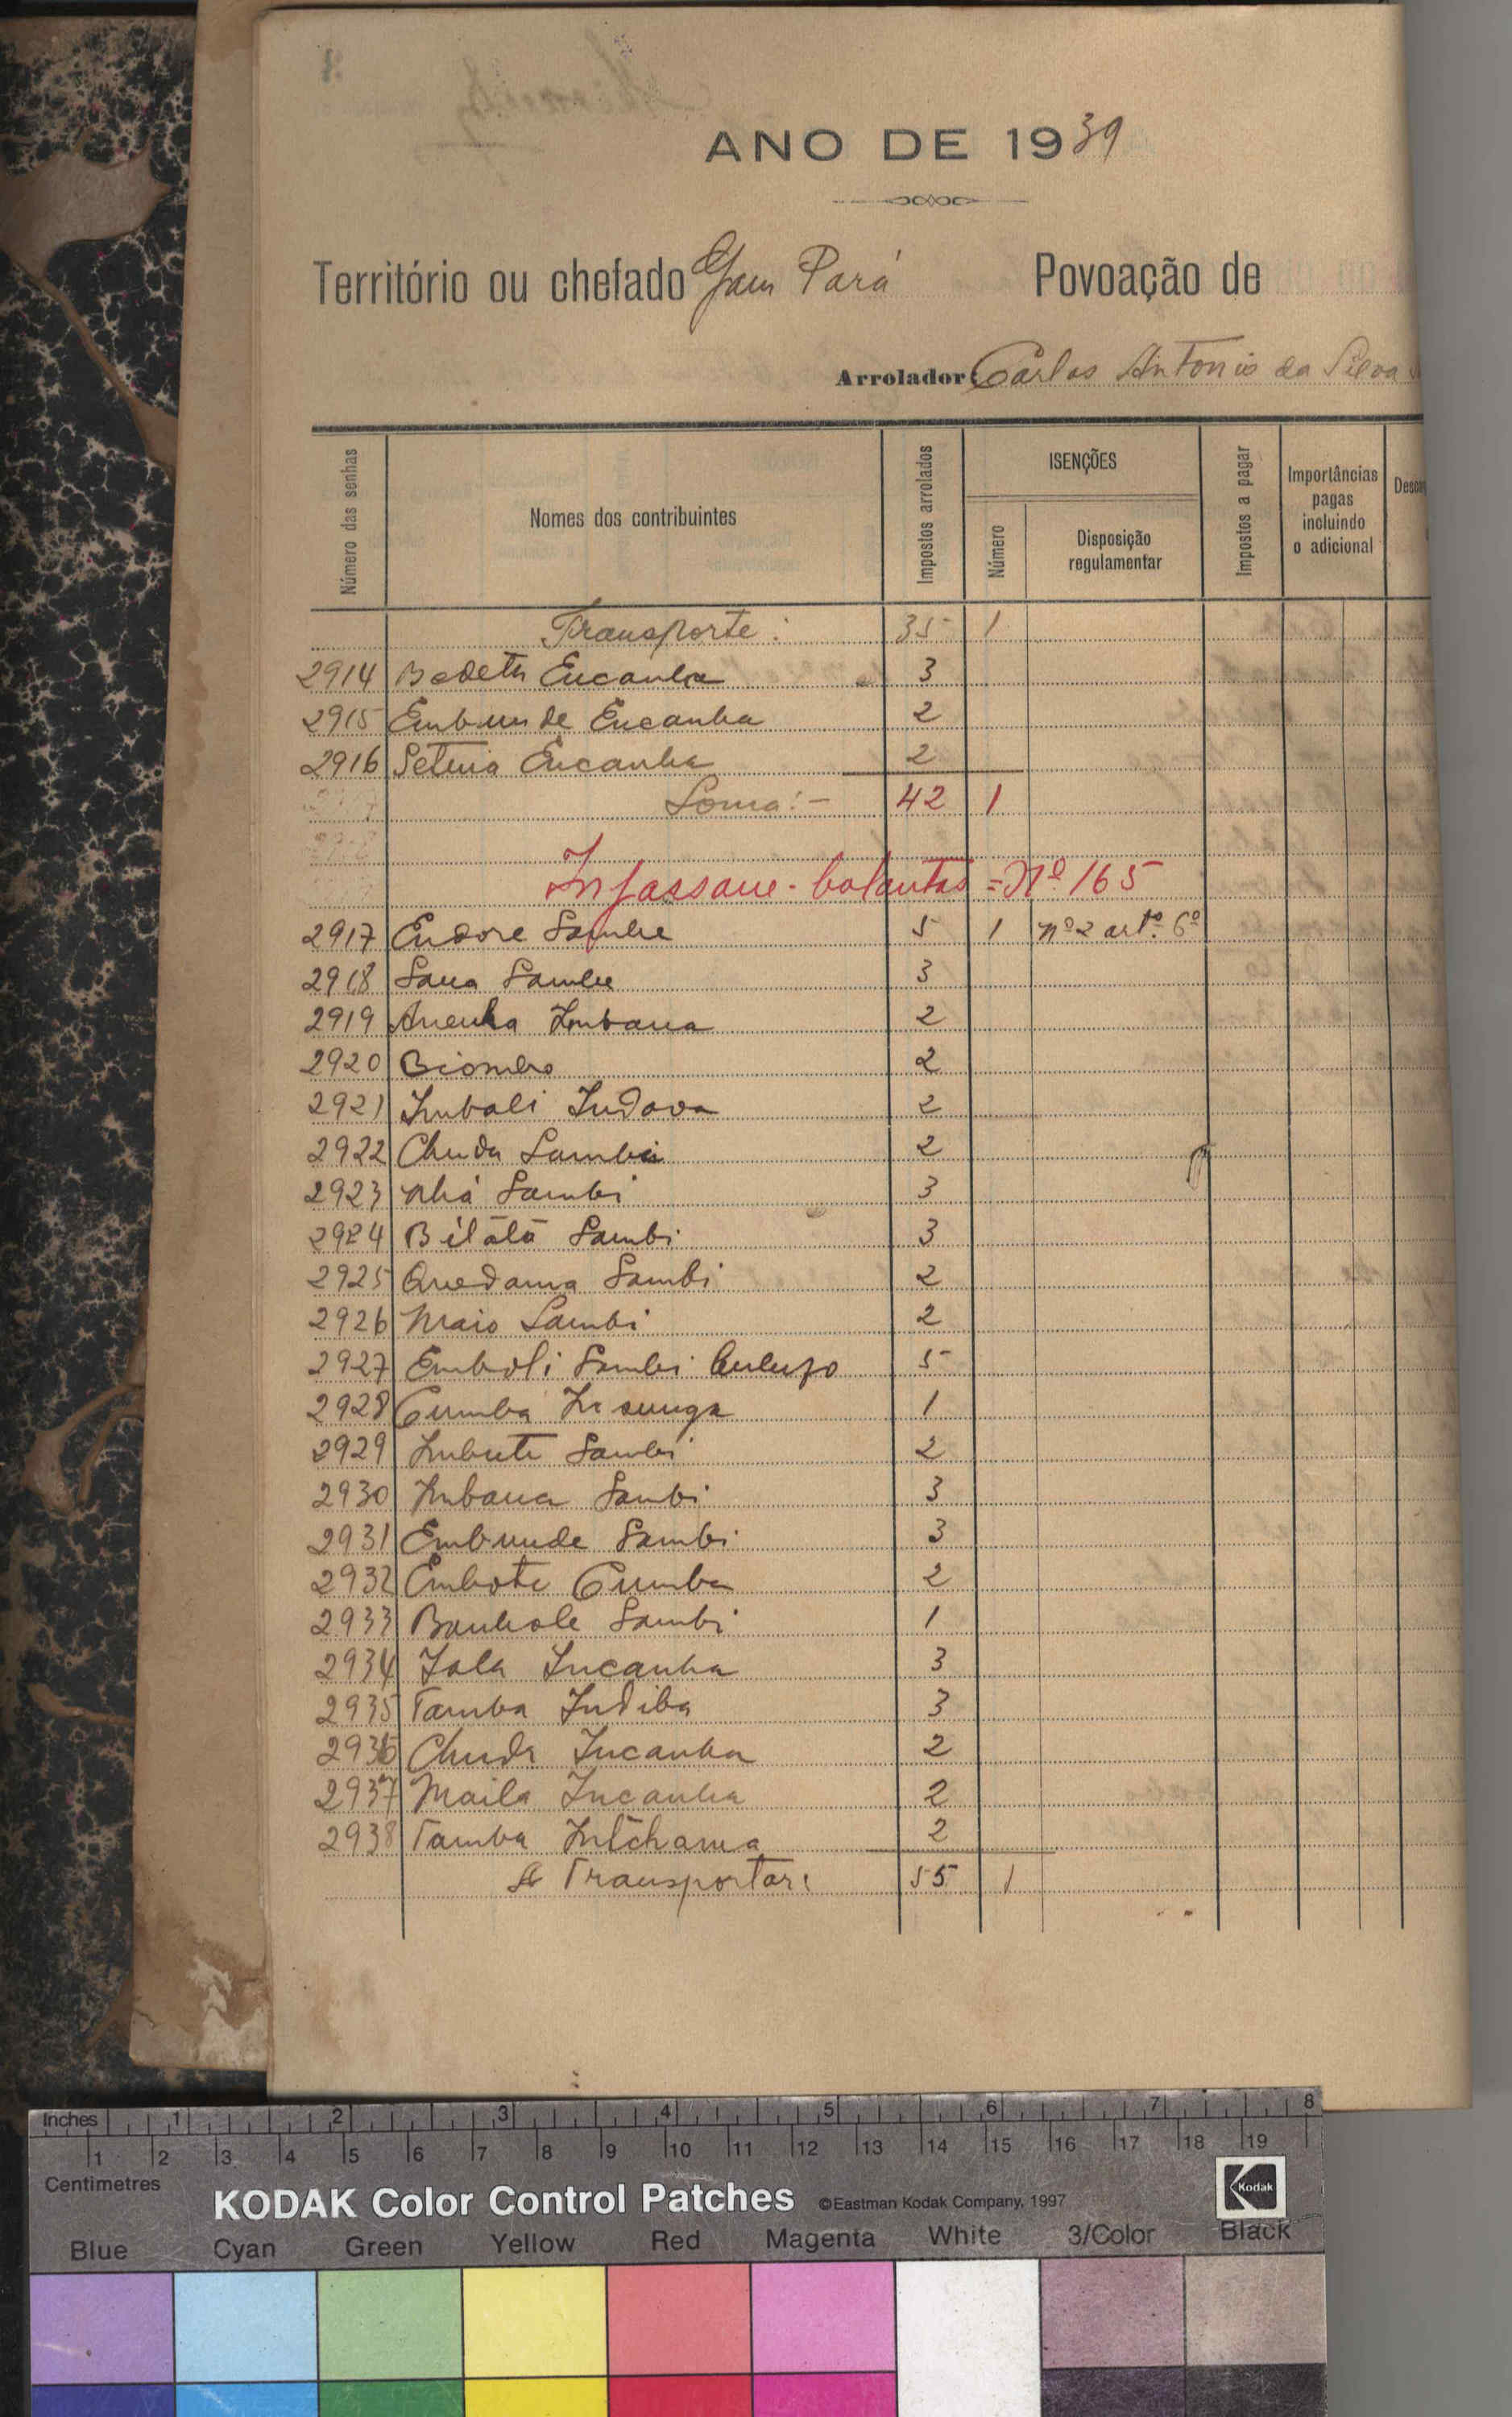 ANO DE 1939
Território ou chefado Gam Pará Povoação de
Arrolador: Carlos Antonio da Silva
Número das senhas
Nomes dos contribuintes
Impostos arrolados
ISENÇÕES
Número
Disposição regulamentar
Impostos a pagar
Importâncias pagas incluindo o adicional
Transporte: 35 1
2914 Bedeth Encanha 3
2915 Embunde Encanha 2
2916 Encanha 2
Soma:- 42 1
Infassane - balantas = Nº 165
2917 Endore Sambu 5 1 nº 2 artº. 6º
2918 Sana Sambu 3
2919 Imbana 2
2920 Biombo 2
2921 Imbali Indava 2
2922 Chuda Sambi 2
2923 Nhá Sambi 3
2924 Bilátá Sambi 3
2925 Quedama Sambi 2
2926 Maio Sambi 2
2927 Emboli Sambi 5
2928 Cumba 1
2929 Imbute Sambi 2
2930 Imbana Sambi 3
2931 Embunde Sambi 3
2932 Embote Cumba 2
2933 Banhole Sambi 1
2934 Iala Incanha 3
2935 Tamba Indiba 3
2936 Chuda Incanha 2
2937 Maila Incanha 2
2938 Tamba Intchama 2
A Transportar: 55 1
Inches 1 2 3 4 5 6 7 8
1 2 3 4 5 6 7 8 9 10 11 12 13 14 15 16 17 18 19
Centimetres
KODAK Color Control Patches ©Eastman Kodak Company, 1997 Kodak
Blue Cyan Green Yellow Red Magenta White 3/Color Black